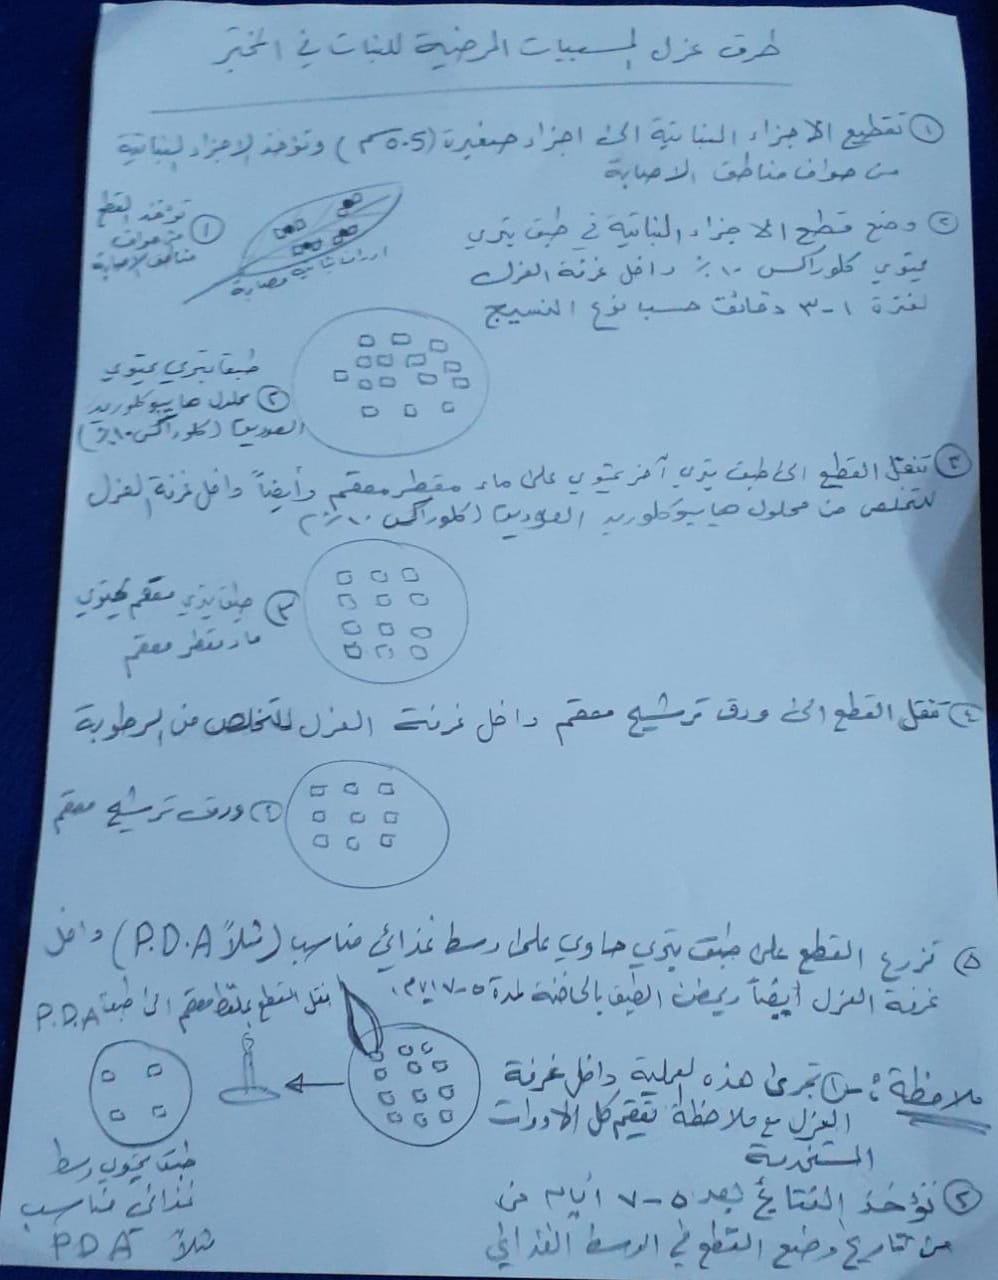 طرق عزل المسببات المرضية للنبات في المختبر
① تقطيع الاجزاء النباتية الى اجزاء صغيرة (0.5 سم) وتؤخذ الاجزاء النباتية
من حواف مناطق الاصابة
① تؤخذ القطع
من حواف
مناطق الاصابة
اوراق نباتية مصابة
② وضع قطع الاجزاء النباتية في طبق بتري
يحتوي كلوراكس ١٠٪ داخل غرفة العزل
لفترة ١-٣ دقائق حسب نوع النسيج
طبق بتري يحتوي
② محلول هايبوكلوريد
الصوديوم (كلوراكس ١٠٪)
③ تنقل القطع الى طبق بتري آخر يحتوي على ماء مقطر معقم وأيضاً داخل غرفة العزل
للتخلص من محلول هايبوكلوريد الصوديوم (كلوراكس ١٠٪)
③ طبق بتري معقم يحتوي
ماء مقطر معقم
④ تنقل القطع الى ورق ترشيح معقم داخل غرفة العزل للتخلص من الرطوبة
④ ورق ترشيح معقم
⑤ تزرع القطع على طبق بتري حاوي على وسط غذائي مناسب (مثلاً P.D.A) داخل
غرفة العزل أيضاً ويحضن الطبق بالحاضنة لمدة ٥-٧ ايام.
بنقل القطع بملقط معقم الى طبق P.D.A
ملاحظة: ① تجرى هذه العملية داخل غرفة
العزل مع ملاحظة تعقيم كل الادوات
المستخدمة
طبق يحتوي وسط
غذائي مناسب
مثلاً PDA
② تؤخذ النتائج بعد ٥-٧ ايام من
من تاريخ وضع القطع في الوسط الغذائي